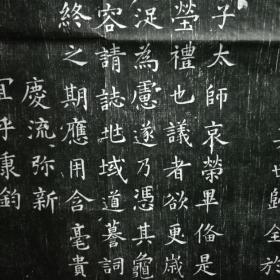 世歸全於
子太師哀榮畢俻是
塋禮也議者欲更歲
浞為慮遂乃憑其龜
容請誌地域道謩詞
終之期應用含毫貴
慶流弥新
宜乎康鈞